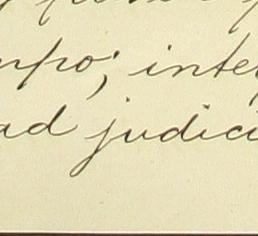 mpo; inte
ad judici